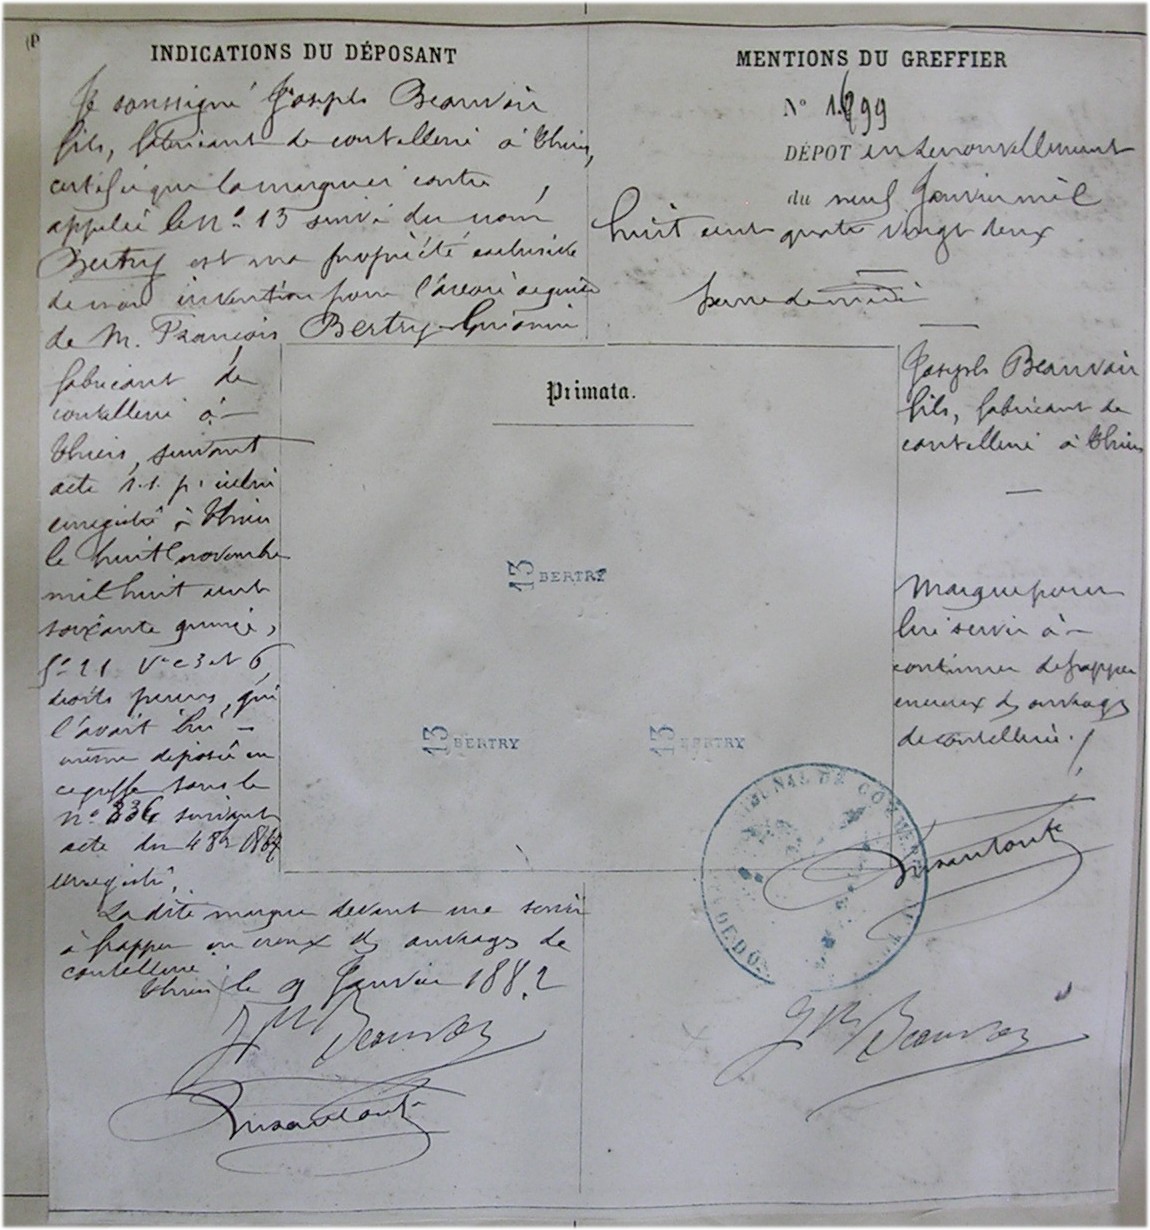 INDICATIONS DU DÉPOSANT
Je soussigné Joseph Beauvoir
fils, fabricant de coutellerie à Thiers,
certifie que la marque ci contre
appelée le N° 13 suivi du nom
Bertry est ma propriété exclusive
de mon invention pour l'avoir acquise
de M. François Bertry-Guionin
fabricant de
coutellerie à
Thiers, suivant
acte s.s. p.
enregistré à Thiers
le huit novembre
mil huit cent
soixante quinze,
f° 21 V° c 3 et 6,
droits perçus, qui
l'avait lui
même déposée en
ce greffe sous le
n° 236 suivant
acte du 4 8bre
enregistré.
La dite marque devant me servir
à frapper en creux des ouvrages de
coutellerie.
Thiers le 9 Janvier 1882
Jph Beauvoir
MENTIONS DU GREFFIER
N° 1.699
DÉPOT en renouvellement
du neuf Janvier mil
huit cent quatre vingt deux
heure de midi
Joseph Beauvoir
fils, fabricant de
coutellerie à Thiers
Marque pour
lui servir à
continuer de frapper
en creux des ouvrages
de coutellerie.
Jph Beauvoir
Primata.
13 BERTRY
13 BERTRY
13 BERTRY
TRIBUNAL DE COMMERCE
PUY DE DÔME